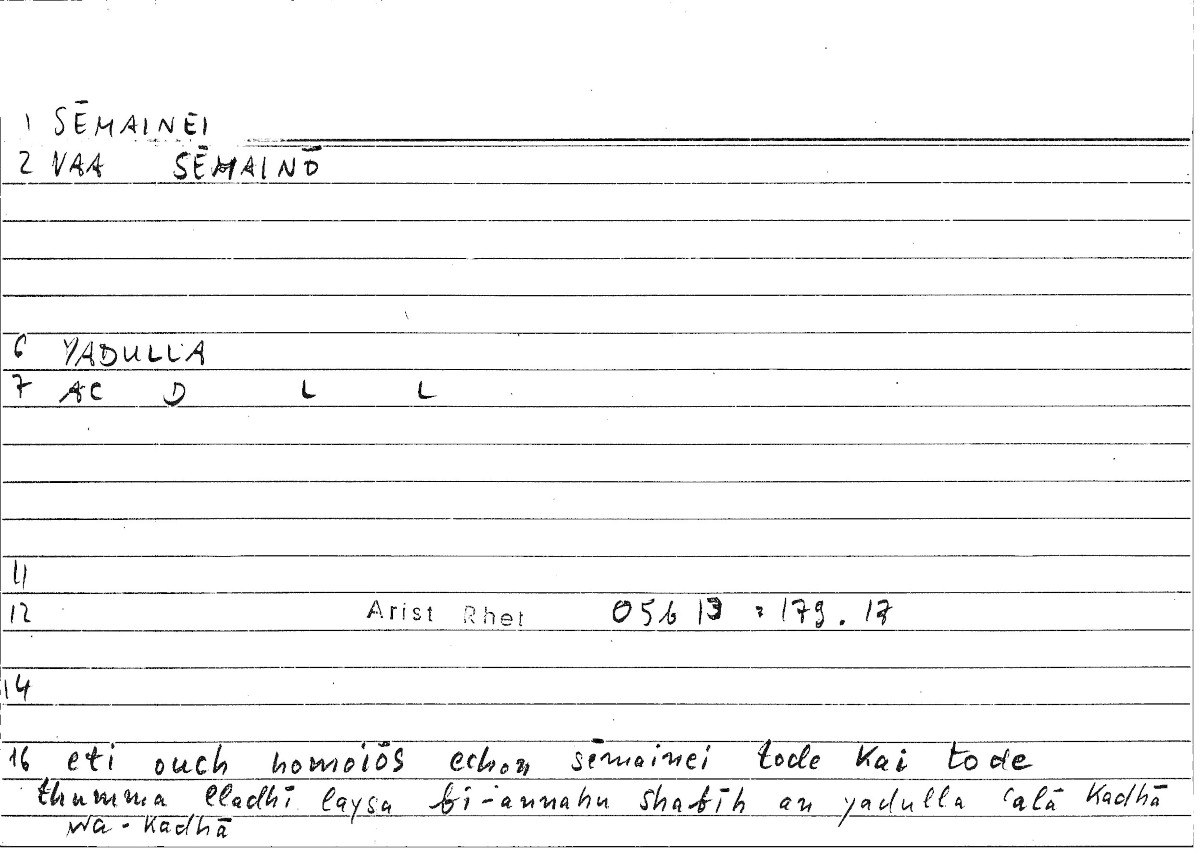 1 SĒMAINEI
2 VAA SĒMAINŌ
6 YADULLA
7 AC D L L
11
12 Arist Rhet 05b 13 : 179.17
14
16 eti ouch homoiōs echon sēmainei tode kai tode
thumma lladhī laysa bi-annahu shabīh an yadulla ʿalā kadhā
wa-kadhā